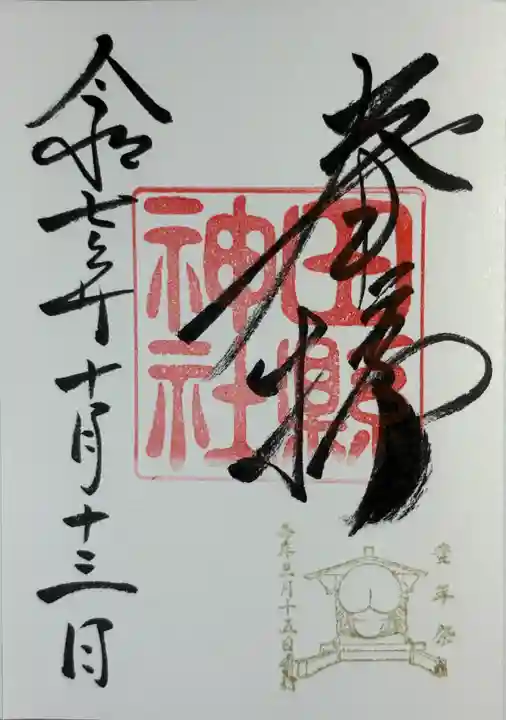 奉拝
田縣
神社
豊年祭
毎年三月十五日
令和七年十月十三日